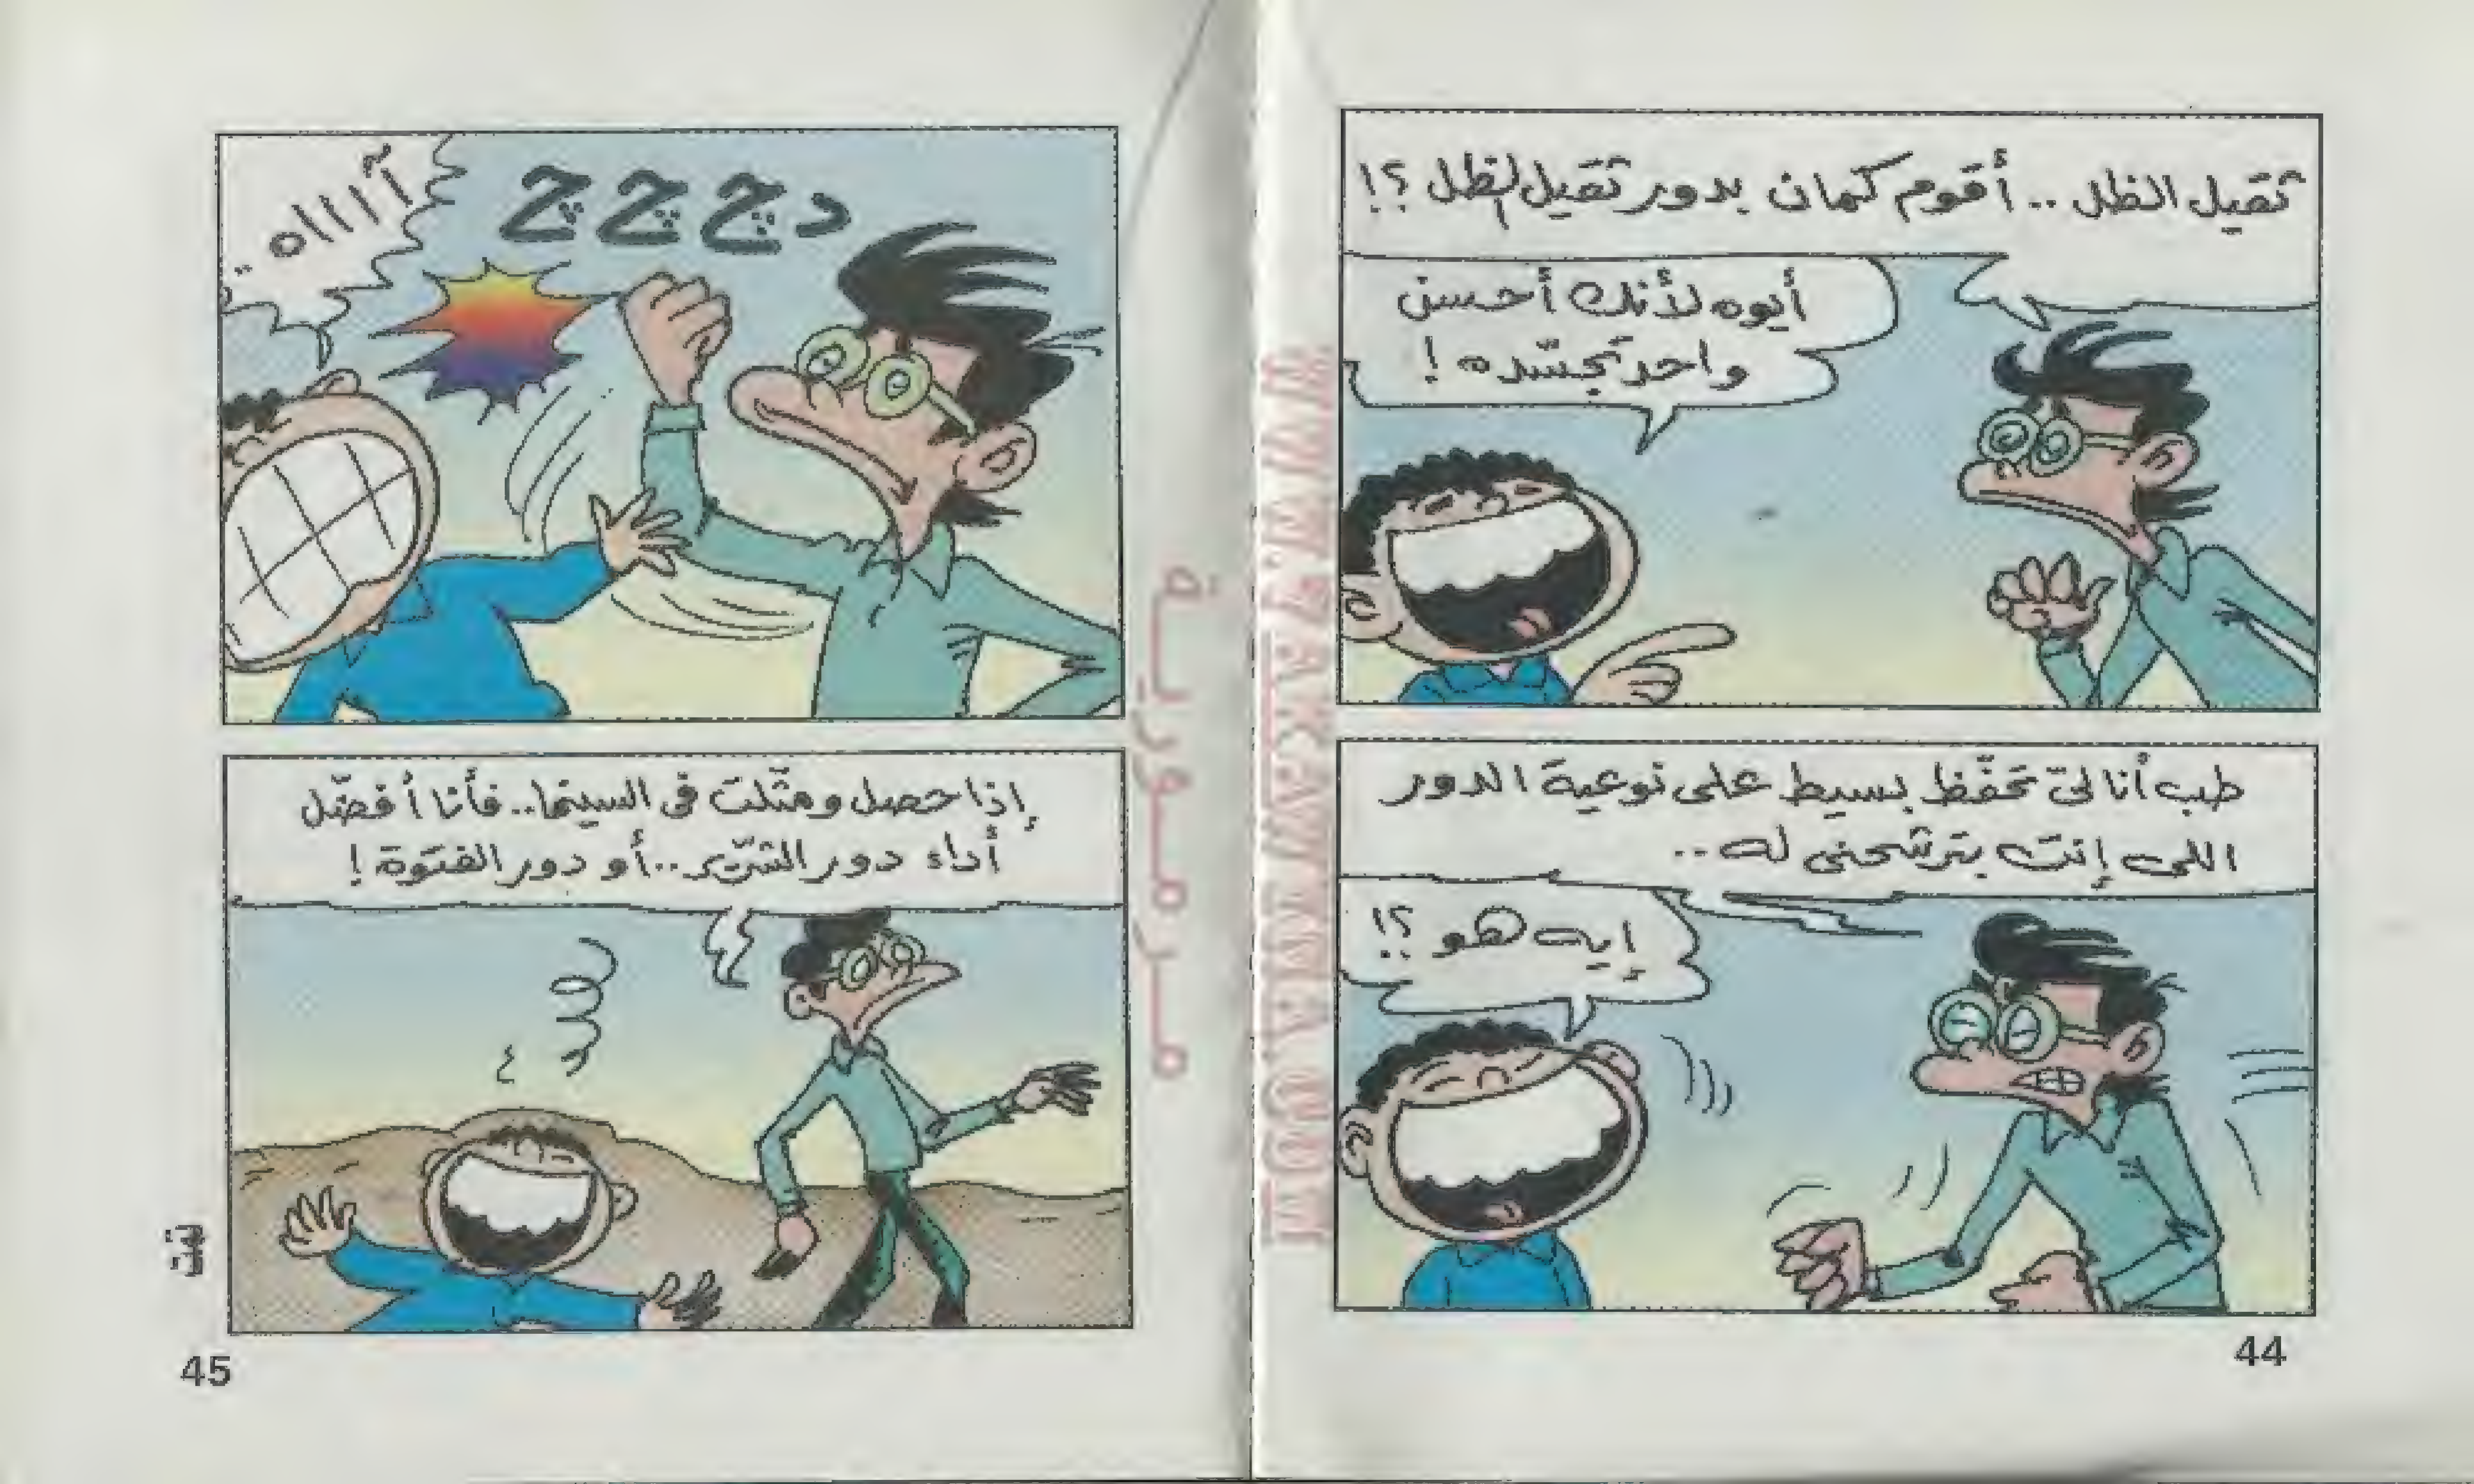 ثقيل الظل .. أقوم كمان بدور ثقيل الظل ؟!
أيوه لأنك أحسن
واحد تجسّده !
طب أنا لىّ تحفّظ بسيط على نوعية الدور
اللى إنت بترشحنى له ..
إيه هو ؟!
44
دچ چ چ
آااااه ..
إذا حصل ومثّلت فى السينما.. فأنا أفضّل
أداء دور الشرّير ..أو دور الفتوة !
تمت
45
مرمورية
WWW.ZAKAWANNA.COM